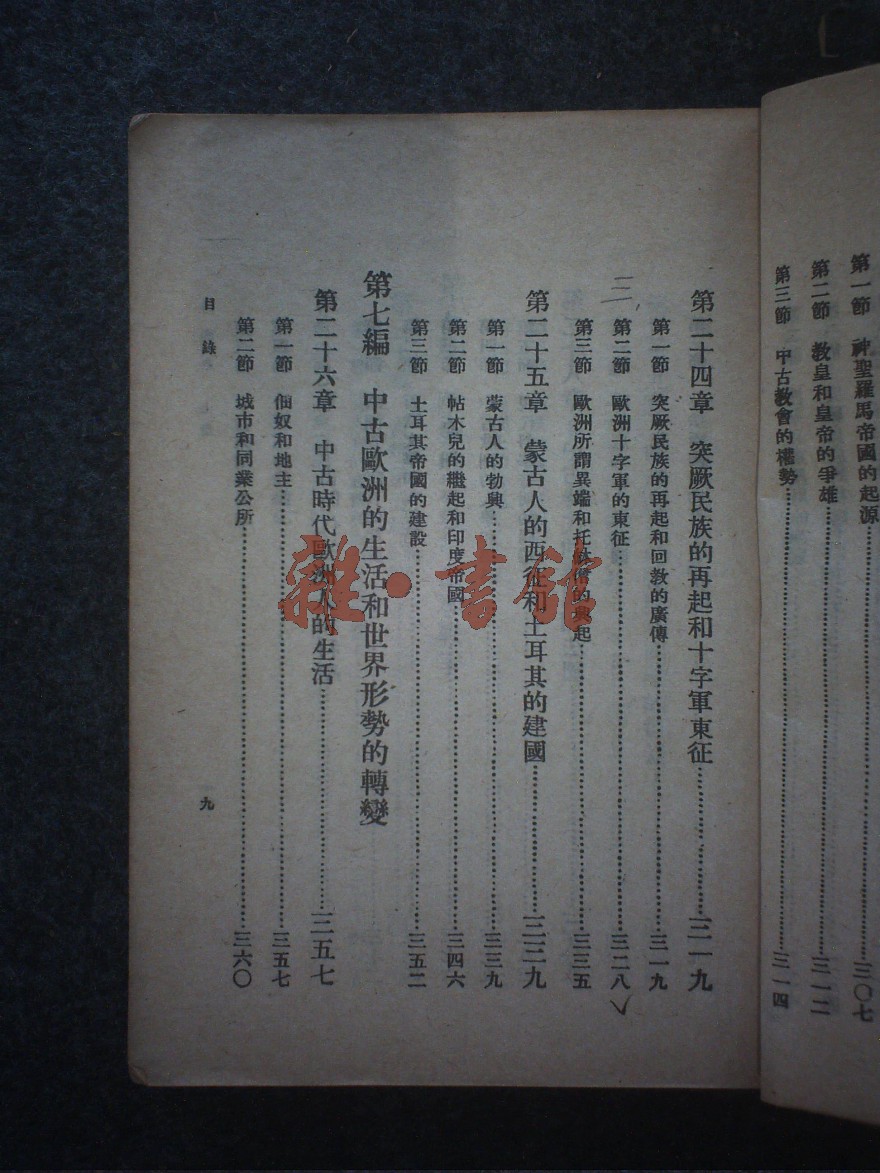 第一節 神聖羅馬帝國的起源……三〇七
第二節 教皇和皇帝的爭雄……三一二
第三節 中古教會的權勢……三一四
第二十四章 突厥民族的再起和十字軍東征……三一九
第一節 突厥民族的再起和回教的廣傳……三一九
第二節 歐洲十字軍的東征……三二八
第三節 歐洲所謂異端和托鉢僧的興起……三三五
第二十五章 蒙古人的西征和土耳其的建國……三三九
第一節 蒙古人的勃興……三三九
第二節 帖木兒的繼起和印度帝國……三四六
第三節 土耳其帝國的建設……三五二
第七編 中古歐洲的生活和世界形勢的轉變
第二十六章 中古時代歐洲人的生活……三五七
第一節 佃奴和地主……三五七
第二節 城市和同業公所……三六〇
目錄
九
三
雜·書館